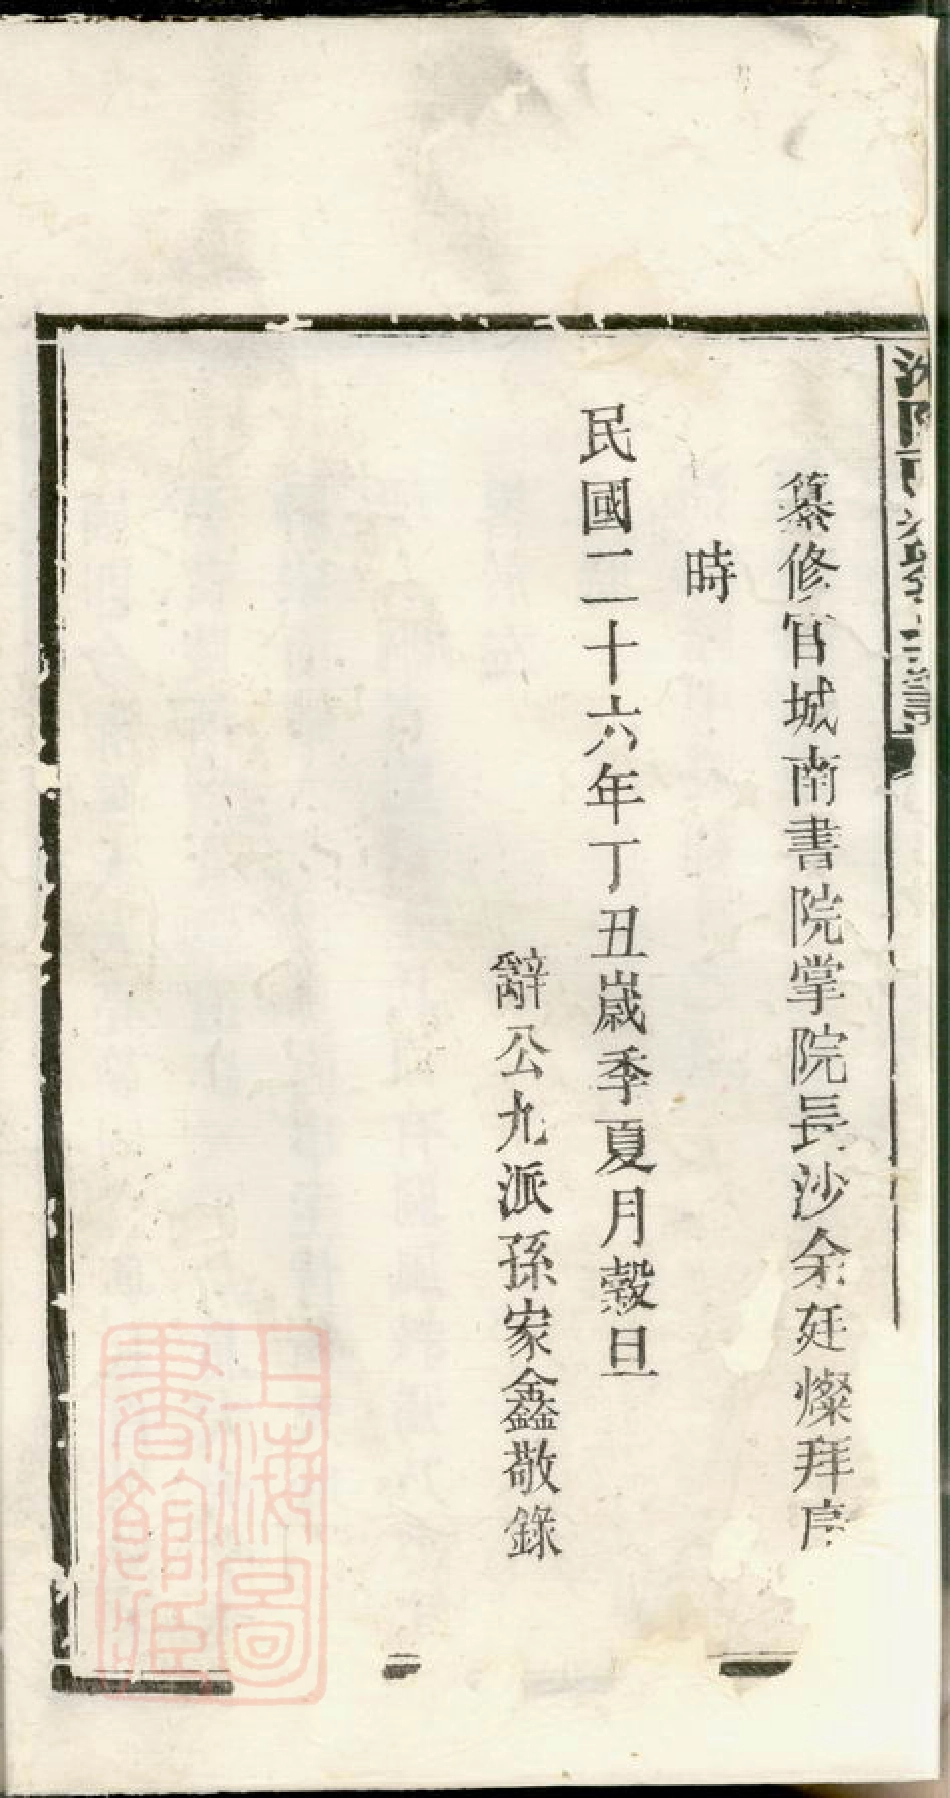 纂修官城南書院掌院長沙余廷燦拜序
時
民國二十六年丁丑歲季夏月穀旦
辭公九派孫家鑫敬錄
上海圖
書館藏